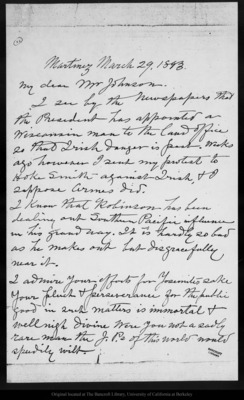 Martinez March 29, 1893
My dear Mr Johnson.
I see by the Newspapers that
the President has appointed a
Wisconsin man to the Land Office
so that Irish danger is past. Weeks
ago however I sent my protest to
Hoke Smith against Irish, & I
suppose Armes did.
I know that Robinson has been
dealing out Southern Pacific influence
in his grand way. It is hardly so bad
as he makes out but disgracefully
near it.
I admire your efforts for Yosemite's sake
Your pluck & perseverance for the public
good in such matters is immortal &
well nigh divine Were you not a sadly
rare man the J. P's of this world would
speedily wilt.
Original located at The Bancroft Library, University of California at Berkeley